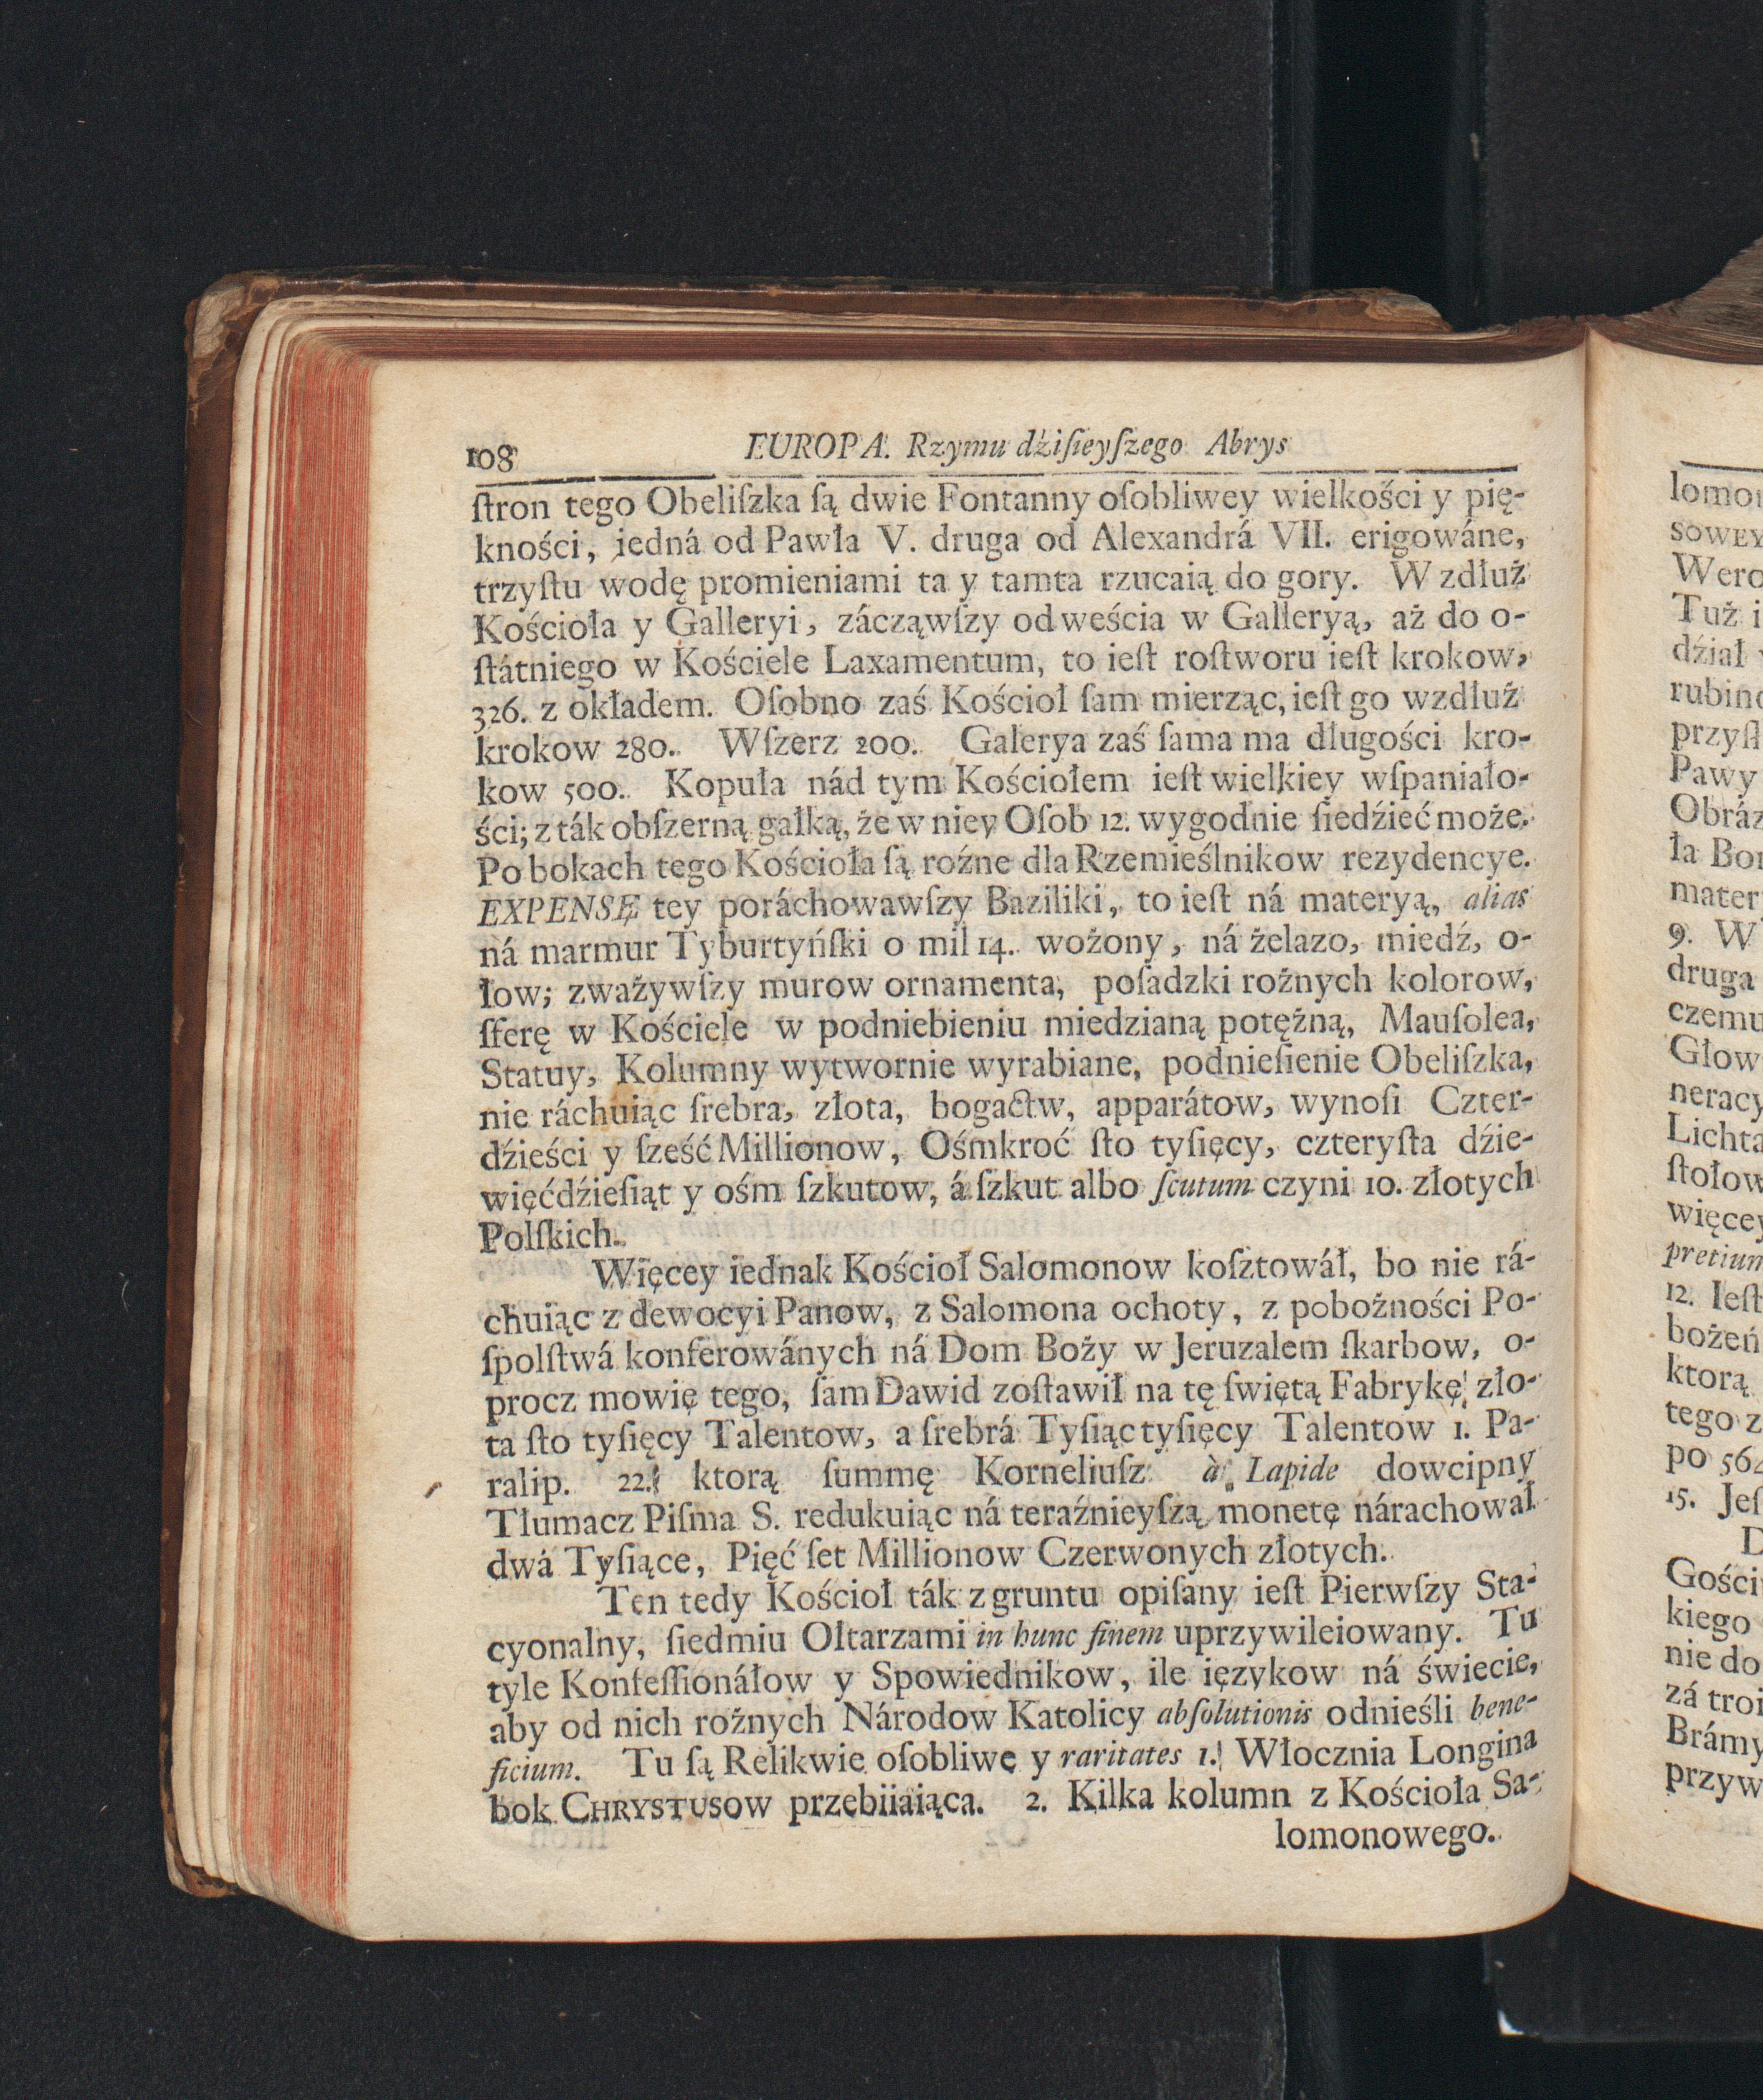 108 EUROPA. Rzymu dźiſieyſzego Abrys
ſtron tego Obeliſzka ſą dwie Fontanny oſobliwey wielkości y pię-
kności, iedná od Pawła V. druga od Alexandrá VII. erigowáne,
trzyſtu wodę promieniami ta y tamta rzucaią do gory. W zdłuż
Kościoła y Galleryi, zácząwſzy od weścia w Galleryą, aż do o-
ſtátniego w Kościele Laxamentum, to ieſt roſtworu ieſt krokow,
326. z okładem. Oſobno zaś Kościoł ſam mierząc, ieſt go wzdłuż
krokow 280. Wſzerz 200. Galerya zaś ſama ma długości kro-
kow 500. Kopuła nád tym Kościołem ieſt wielkiey wſpaniało-
ści; z ták obſzerną gałką, że w niey Oſob 12. wygodnie ſiedźieć może.
Po bokach tego Kościoła ſą roźne dla Rzemieślnikow rezydencye.
EXPENSĘ tey poráchowawſzy Baziliki, to ieſt ná materyą, alias
ná marmur Tyburtyńſki o mil 14. wożony, ná żelazo, miedź, o-
łow; zważywſzy murow ornamenta, poſadzki rożnych kolorow,
ſferę w Kościele w podniebieniu miedzianą potężną, Mauſolea,
Statuy, Kolumny wytwornie wyrabiane, podnieſienie Obeliſzka,
nie ráchuiąc ſrebra, złota, bogactw, apparátow, wynoſi Czter-
dźieści y ſześć Millionow, Ośmkroć ſto tyſięcy, czteryſta dźie-
więćdźieſiąt y ośm ſzkutow, á ſzkut albo ſcutum czyni 10. złotych
Polſkich.
Więcey iednak Kościoł Salomonow koſztowáł, bo nie rá-
chuiąc z dewocyi Panow, z Salomona ochoty, z pobożności Po-
ſpolſtwá konferowánych ná Dom Boży w Jeruzalem ſkarbow, o-
procz mowię tego, ſam Dawid zoſtawił na tę ſwiętą Fabrykę, zło-
ta ſto tyſięcy Talentow, a ſrebrá Tyſiąc tyſięcy Talentow 1. Pa-
ralip. 22. ktorą ſummę Korneliuſz à Lapide dowcipny
Tłumacz Piſma S. redukuiąc ná teraźnieyſzą monetę nárachował
dwá Tyſiące, Pięć ſet Millionow Czerwonych złotych.
Ten tedy Kościoł ták z gruntu opiſany ieſt Pierwſzy Sta-
cyonalny, ſiedmiu Ołtarzami in hunc finem uprzywileiowany. Tu
tyle Konfeſſionáłow y Spowiednikow, ile ięzykow ná świecie,
aby od nich rożnych Národow Katolicy abſolutionis odnieśli bene-
ficium. Tu ſą Relikwie oſobliwe y raritates 1. Włocznia Longina
bok CHRYSTUSOW przebiiaiąca. 2. Kilka kolumn z Kościoła Sa-
lomonowego.
SOWEY
Tuż i
dźiał
Pawy
mater
9. W
druga
czemu
Głow
neracy
Lichta
ſtołow
więcey
pretium
12. Ieſt
bożeń
ktorą
tego z
po 564
15. Jeſ
Gości
kiego
nie do
zá troi
Brámy
przyw